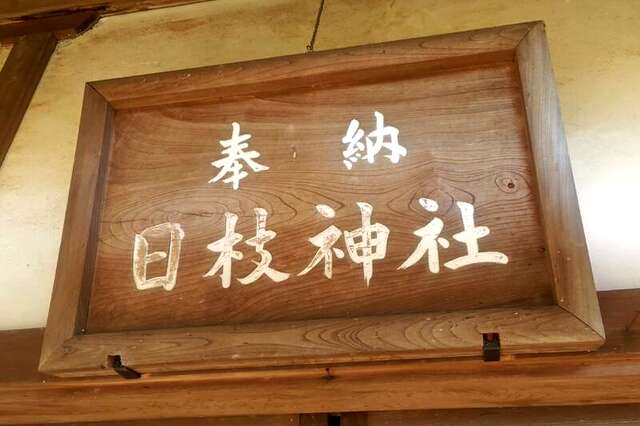 奉納
日枝神社